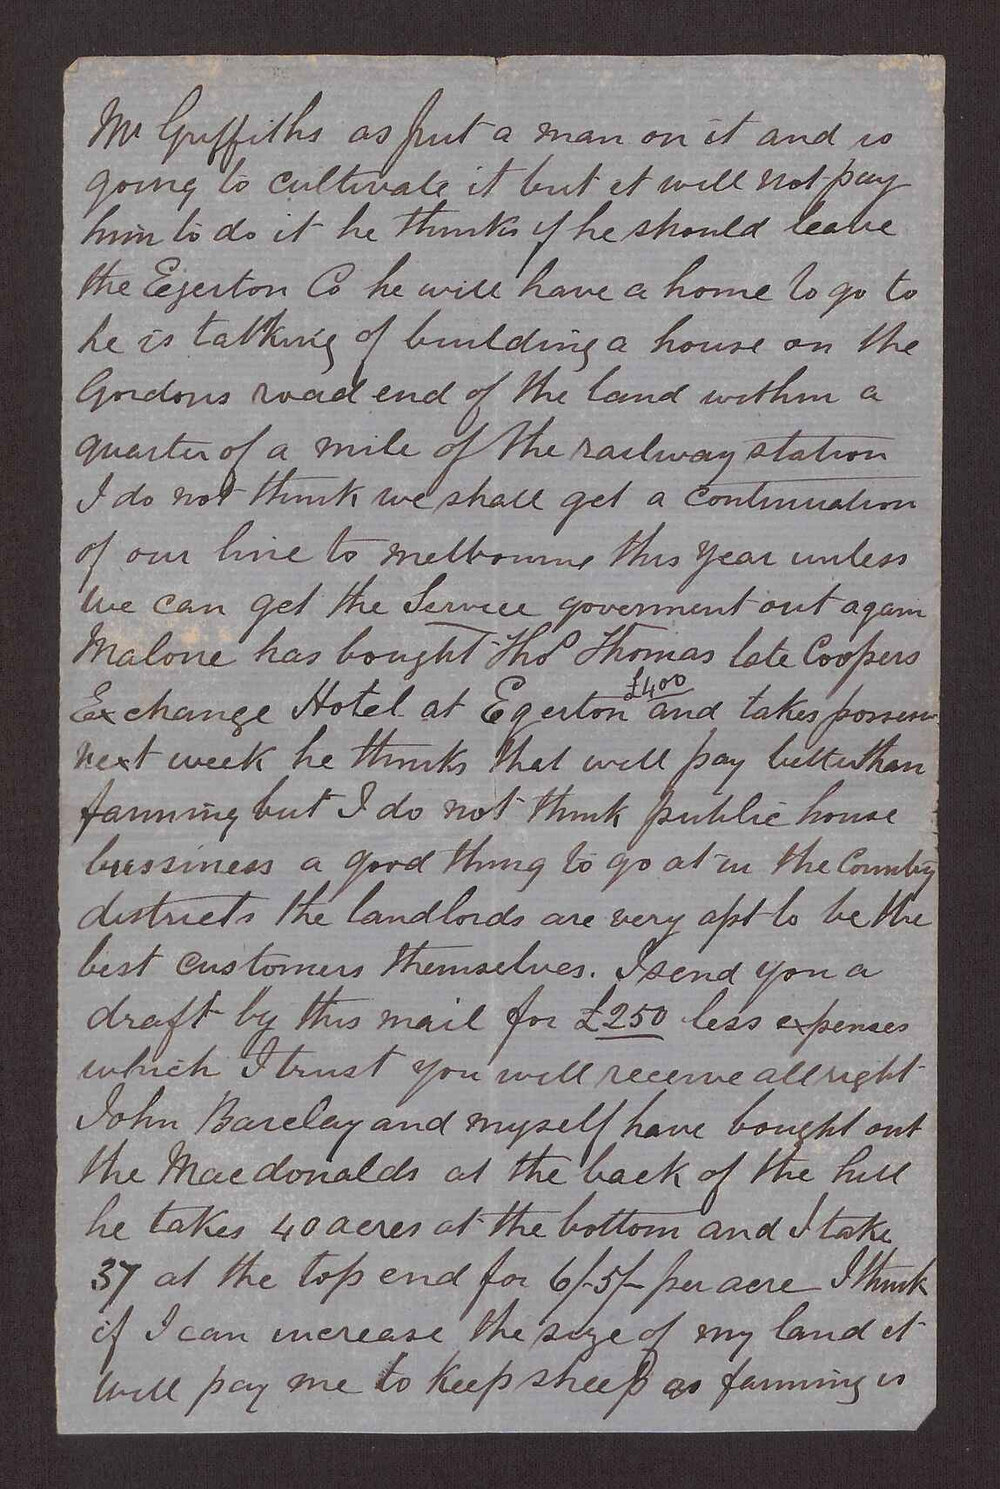 Mr Griffiths as put a man on it and is
going to cultivate it but it will not pay
him to do it he thinks if he should leave
the Egerton Co he will have a home to go to
he is talking of building a house on the
Gordons road end of the land within a
quarter of a mile of the railway station
I do not think we shall get a continuation
of our line to Melbourne this year unless
we can get the Service goverment out again
Malone has bought Thos Thomas late Coopers
Exchange Hotel at Egerton £400 and takes possesn
next week he thinks that will pay better than
farming but I do not think public house
bussiness a good thing to go at in the Country
districts the landlords are very apt to be the
best customers themselves. I send you a
draft by this mail for £250 less expenses
which I trust you will receive all right
John Barclay and myself have bought out
the Macdonalds at the back of the hill
he takes 40 acres at the bottom and I take
37 at the top end for 6/-5/- per acre I think
if I can increase the size of my land it
will pay me to keep sheep as farming is